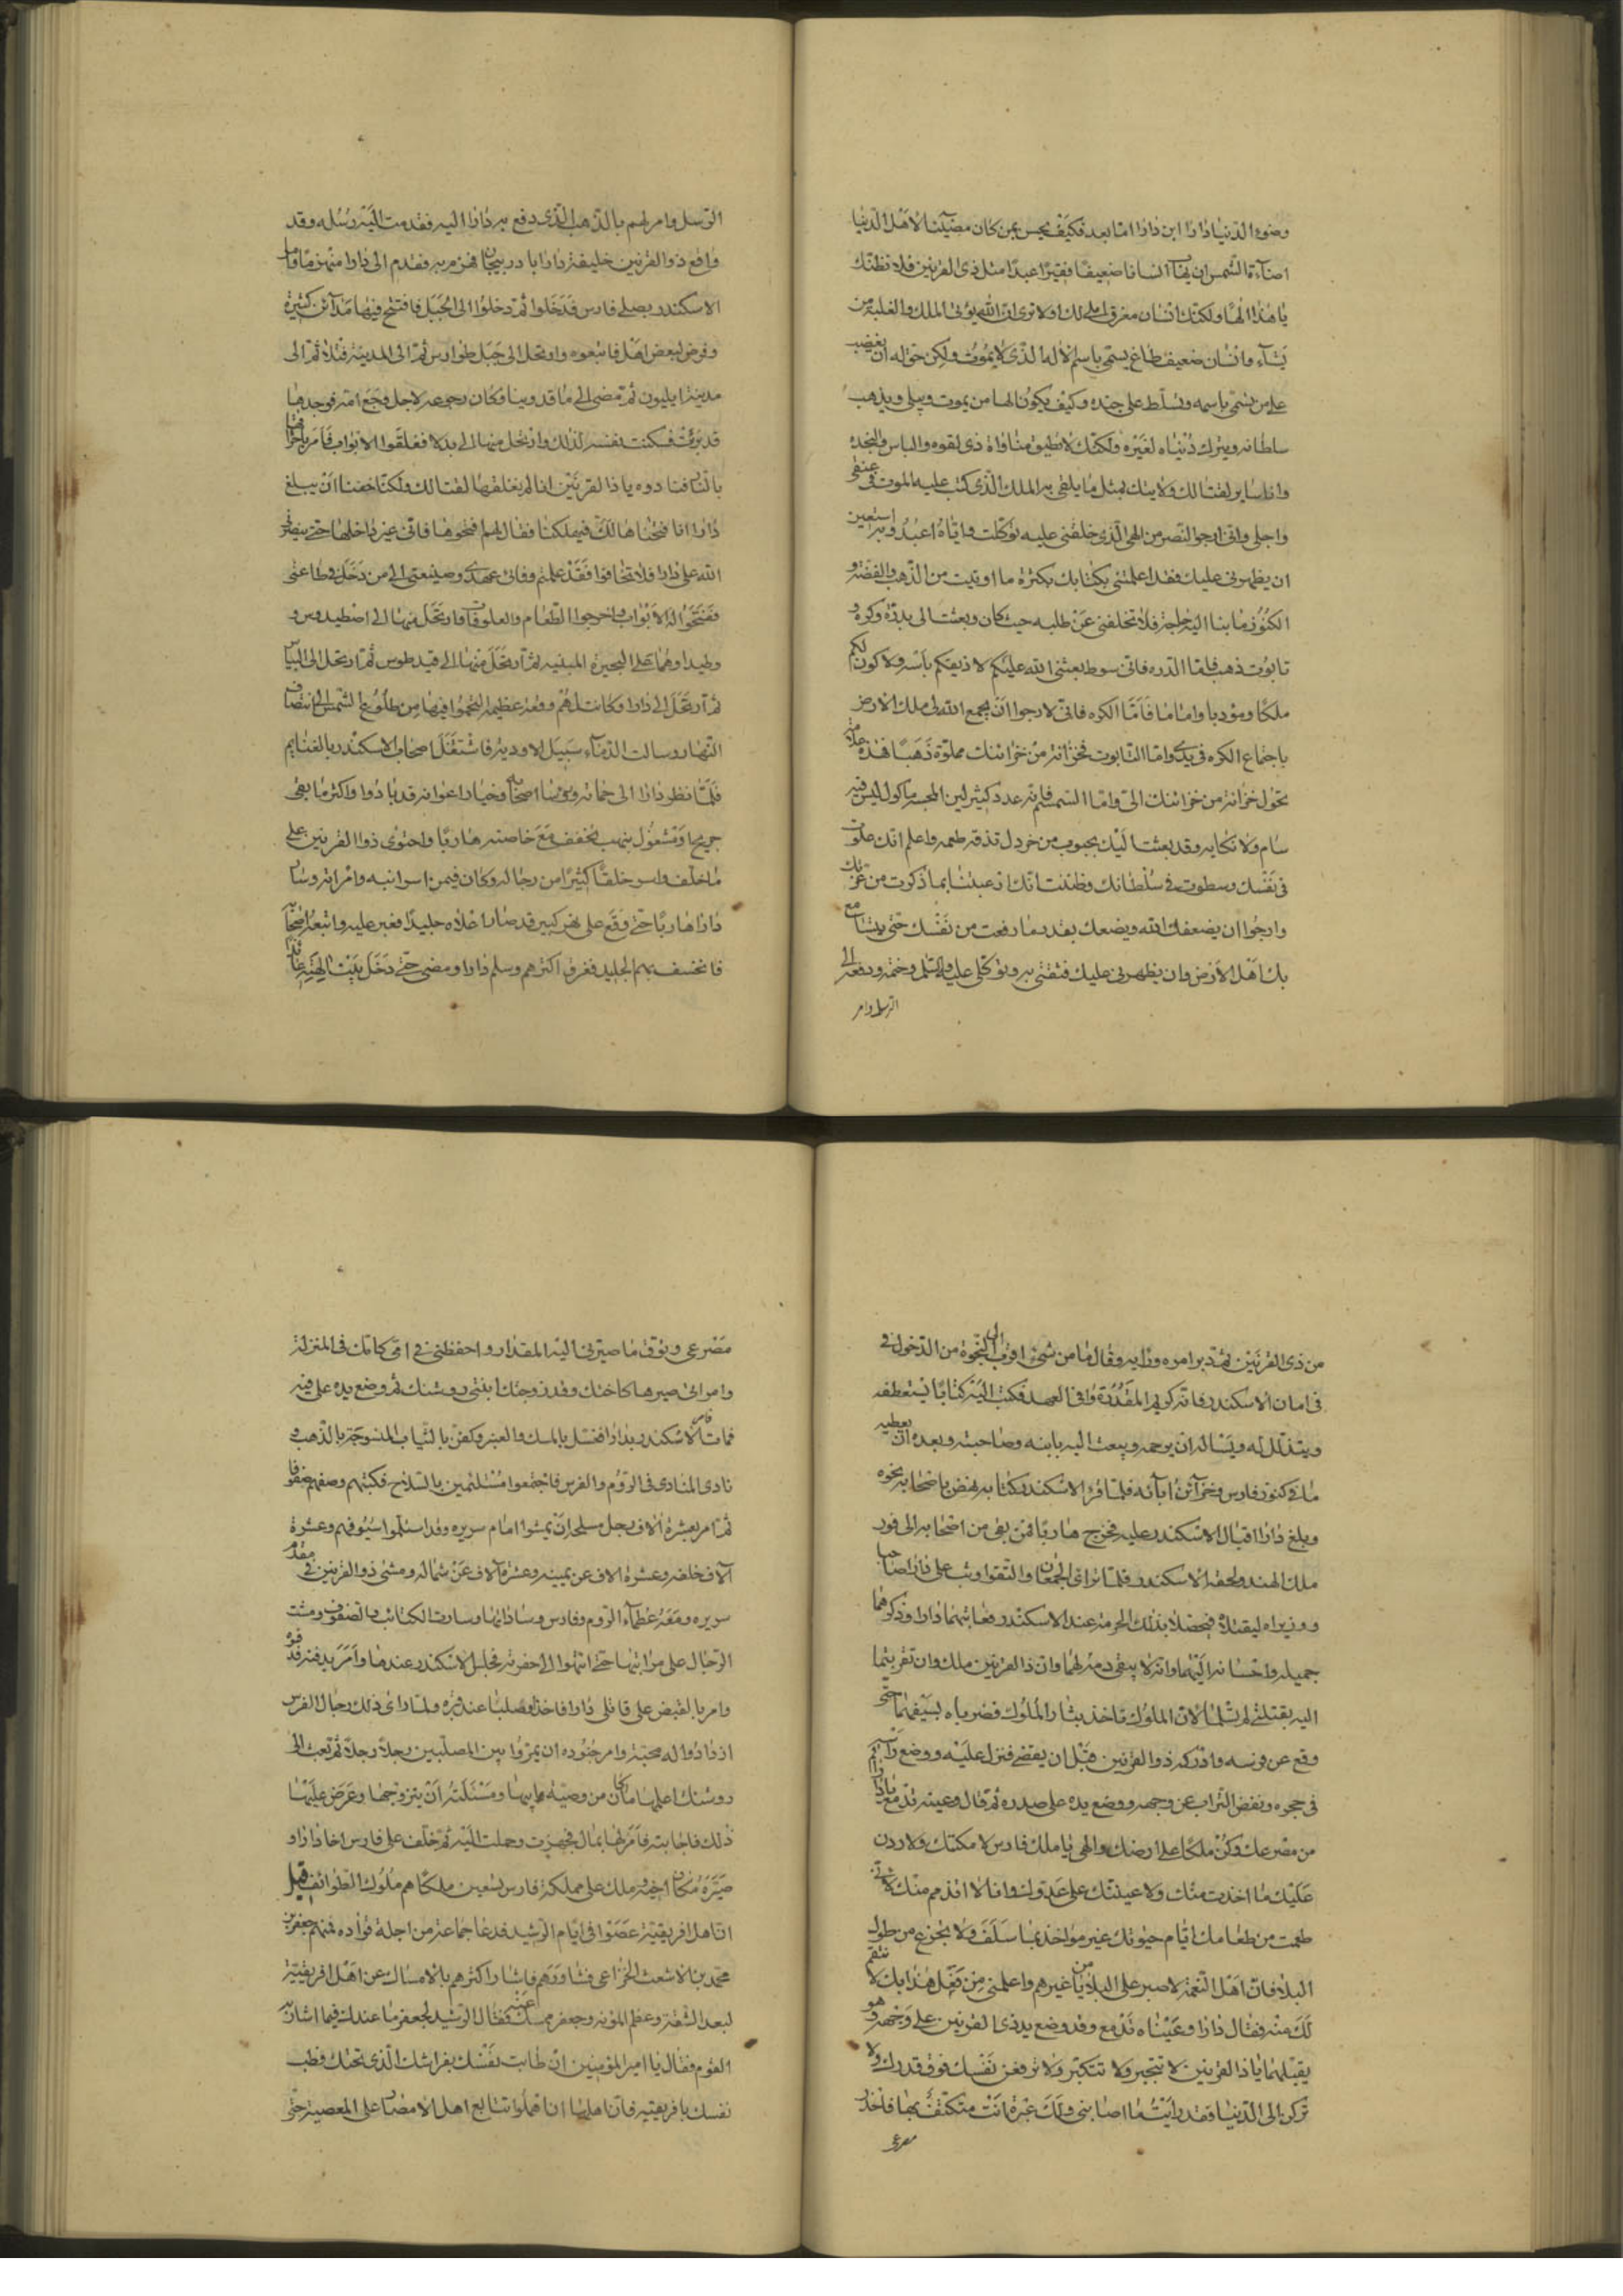 وضوء الدنيا دارا ابن دارا اما بعد فكيف يحسن بمن كان مضيئا لاهل الدنيا
اضاءة الشمس ان يهاب انسانا ضعيفا فقيرا عبدا مثل ذى القرنين فلا تظنك
يا هذا الها ولكنك انسان مغرق املى لك اولا ترى ان الله يؤتى الملك والغلبة من
يشاء وانسان ضعيف طاغ يسمى باسم الاله الذى لا يموت ولكن حق له ان يغضب
على من يسمى باسمه ويسلط على جنده وكيف يكون الها من يموت ويبلى ويذهب
سلطانه ويترك دنياه لغيره ولكنك لا تطيق مناواة ذى القوه والباس والنجده
وانا ساير لقتالك ولايتك بمثل ما يلقى به الملك الذى كتب عليه الموت فى عنقى
واجلى وانى ارجوا النصر من الهى الذى خلقنى عليه توكلت واياه اعبد وبه استعين
ان يظهرنى عليك فقد اعلمتنى بكتابك بكثرة ما اوتيت من الذهب والفضة و
الكنوز وما بنا اليه حاجة فلا تخلفنى عن طلبه حيث كان وبعثت الى بدرة وكره و
تابوت ذهب فاما الدره فانى سوط بعثنى الله عليكم لاذيقكم باسه ولاكون لكم
ملكا ومؤدبا واماما فاما الكره فانى لارجوا ان يجمع الله لى ملك الارض
باجتماع الكره فى يدى واما التابوت فخزانة من خزائنك مملوة ذهبا فهذه علامة
تحول خزانة من خزائنك الى واما السمسم فانه عدد كثير لين المجسه ماكول ليس فيه
سام ولا نكايه وقد بعثت اليك بجبوب من خردل تذقه طعمه واعلم انك علوت
فى نفسك وسطوت فى سلطانك وظننت انك ارعبتنا بما ذكرت من عزتك
وارجوا ان يضعفك الله ويضعك بقدر ما رفعت من نفسك حتى يتسامع
بك اهل الارض وان يظهرنى عليك فثقتى به وتوكلى عليه والسلم وختمه ودفعه الى
الرسل وامر
الرسل وامر لهم بالذهب الذى دفع به دارا اليه فقدمت اليه رسله وقد
واقع ذو القرنين خليفة دارا باذربيجان فهزم به فقدم الى دارا منهزما وما
الاسكندر يصلى فارس فدخلوا ثم دخلوا الى الجبل فافتتح فيها مدائن كثيرة
وفرض لبعض اهل فاتبعوه وارتحل الى جبل طوارس ثم الى المدينة قتلاه ثم الى
مدينة ايليون ثم مضى الى ماقدونيا وكان رجوعه لاجل وجع امه فوجدها
قد برئت فسكنت نفسه لذلك وارتحل منها الى بدلا فغلقوا الابواب فامر باحراقها
بالنار فنادوه ياذا القرنين انا لم نغلقها لقتالك ولكنا خفنا ان يبلغ
دارا انا فتحناها لك فيهلكنا فقال لهم افتحوها فانى غير داخلها حتى ينصرنى
الله على دارا فلا تخافوا فقد علمتم وفائى عهدى وصنيعتى الى من دخل فى طاعتى
ففتحوا له الابواب واخرجوا الطعام والعلوفات وارتحل منها الى اصطيدوس و
وطيدا وهما على البحيرة المبنيه ثم ارتحل منها الى قيد طوس ثم ارتحل الى البياس
ثم ارتحل الى دارا وكانت لهم وقعة عظيمة التحموا فيها من طلوع الشمس الى انتصاف
النهار وسالت الدماء سبيل الاوديه فاشتغل اصحاب الاسكندر بالغنايم
فلما نظر دارا الى حماته ورؤسا اصحابه وخيار اعوانه قد بادوا واكثر ما بقى
جريحا ومشغول بنهب تخفف مع خاصته هاربا واحتوى ذوا القرنين على
ما خلف واسر خلقا كثيرا من رجاله وكان فيمن اسر ابنه وامراته وسار
دارا هاربا حتى وقع على نهر كبير قد صار اعلاه جليدا فعبر عليه واتبعه اصحابه
فانخسف بهم الجليد فغرق اكثرهم وسلم دارا ومضى حتى دخل بيت الهته عائذا
من ذى القرنين ثم تدبر امره ورايه وقال ما من شئ اقرب الى النجوة من الدخول فى
فى امان الاسكندر فانه كريم المقدرة وافى العهد فكتب اليه كتابا يستعطفه
ويتذلل له ويساله ان يرحمه ويبعث اليه بابنه وصاحبته وبعده ان يعطيه
ما فى كنوز فارس وخزائن ابائه فلما قرا الاسكندر كتابه نهض باصحابه نحوه
وبلغ دارا اقبال الاسكندر عليه فخرج هاربا فمن بقى من اصحابه الى فور
ملك الهند ولحقه الاسكندر فلما ترائ الجمعان والتقوا وثب على دارا صاحبا
ووزيراه ليقتلاه فيحصلا بذلك الحرمة عند الاسكندر فعاتبهما دارا وذكرهما
جميله واحسانه اليهما وانه لا يبقى دمه لهما وان ذا القرنين ملك وان تقربتما
اليه بقتلى لم تسلما لان الملوك تاخذ بثار الملوك فضرباه بسيفهما حتى
وقع عن فرسه وادركه ذوا القرنين قبل ان يقضى فنزل عليه ووضع راسه
فى حجره ونفض التراب عن وجهه ووضع يده على صدره ثم قال وعينه تدمع يا دارا قم
من مصرعك وكن ملكا على ارضك والهى يا ملك فارس لامكنك ولاردن
عليك ما اخذت منك ولاعيننك على عدوك وانا لا اذمم منك لانى
طعمت من طعامك ايام حيوتك غير مواخذ بما سلف ولا تجزع من حلول
البلاء فان اهل النعمة لاصبر على البلايا من غيرهم واعلمنى من فعل هذا بك لانتقم
لك منه فقال دارا وعيناه تدمع وقد وضع يد ذى القرنين على وجهه وهو
يقبلهما يا ذا القرنين لا تتجبر ولا تتكبر ولا ترفعن نفسك فوق قدرك ولا
تركن الى الدنيا فقد رايت ما اصابنى ولك عبرة انت متكثف بها فاحذر
مصرعى
مصرعى وتوق ما صيرنى اليه المقدار واحفظنى فى امى كانك فى المنزلة
وامراتى صيرها كاختك وقد زوجتك ابنتى روشنك ثم وضع يده على فيه
فمات فامر الاسكندر بدارا فغسل بالمسك والعنبر وكفن بالثياب المنسوجة بالذهب و
نادى المنادى فى الروم والفرس فاجتمعوا متسلحين بالسلاح فكتبهم وصفهم صفوفا
ثم امر بعشرة الاف رجل مسلح ان يمشوا امام سريره وقد استلوا سيوفهم وعشرة
الاف خلفه وعشرة الاف عن يمينه وعشرة الاف عن شماله ومشى ذو القرنين فى مقدم
سريره ومعه عظماء الروم وفارس وساداتها وسارت الكتائب بالصفوف ومشت
الرجال على مراتبها حتى انتهوا الى حفرته فجلس الاسكندر عندها وامر بدفنه فدفنوه
وامر بالقبض على قاتلى دارا فاخذا وصلبا عند قبره ولما راى ذلك رجال الفرس
ازدادوا له محبة وامر جنوده ان يمروا بين المصلبين رجلا رجلا ثم بعث الى
روشنك اعلمها ما كان من وصية ابيها ومسئلته ان يتزوجها وعرض عليها
ذلك فاجابته فامر لها بمال فجهزت وحملت اليه ثم خلف على فارس اخا دارا و
صيره مكان اخيه وملك على مملكة فارس تسعين ملكا هم ملوك الطوائف قيل
ان اهل افريقية عصوا فى ايام الرشيد فدعا جماعة من اجلة قواده فمنهم جعفر بن
محمد بن الاشعث الخزاعى فشاورهم فاشار اكثرهم بالامساك عن اهل افريقية
لبعد الشقة وعظم المؤنه وجعفر ممسك عنه فقال الرشيد لجعفر ما عندك فيما اشار به
القوم فقال يا امير المؤمنين ان طابت نفسك بفراشك الذى تحتك فطب
نفسك بافريقيه فان اهلها ان اهملوا تتابع اهل الامصار على المعصية حتى